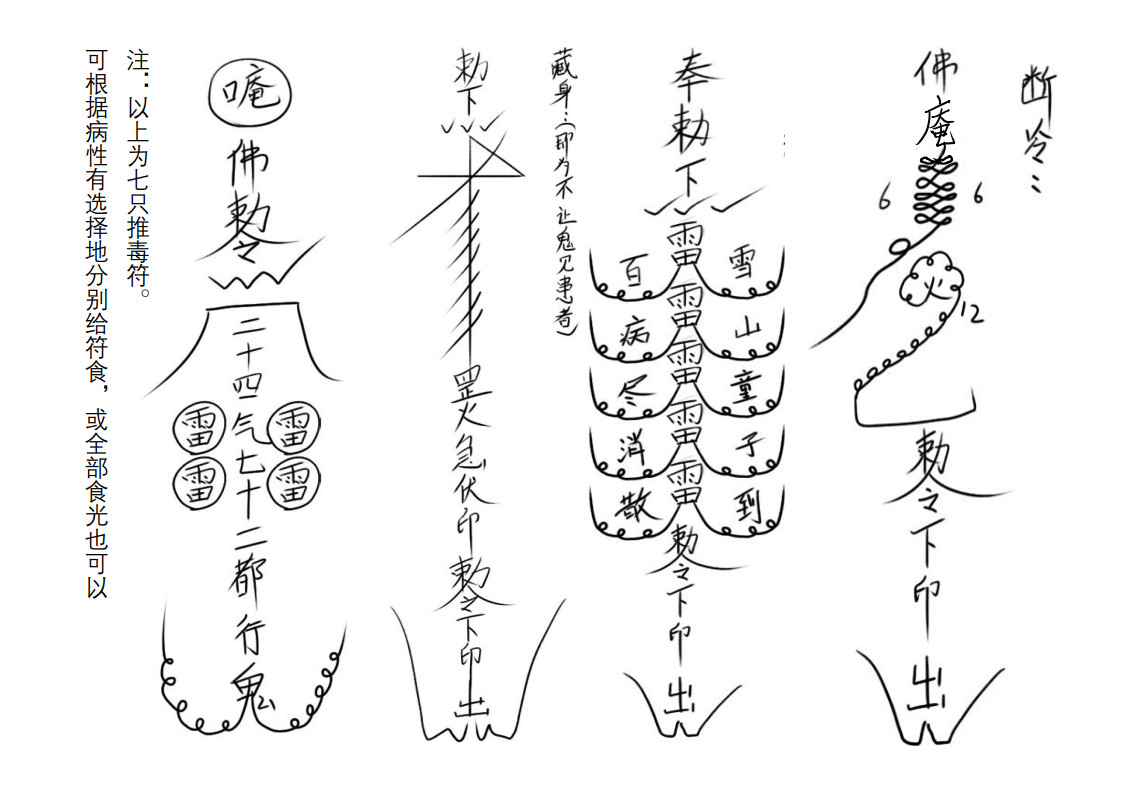 断冷:
佛庵
6 6
火
12
勅令下印出
奉勅下
雷雷雷雷雷
雪山童子到
百病尽消散
勅令下印出
藏身：（即为不让鬼见患者）
勅下
罡火急伏印勅令下印出
唵
佛勅令
二十四气七十二都行鬼
雷雷
雷雷
注：以上为七只推毒符。
可根据病性有选择地分别给符食，或全部食光也可以